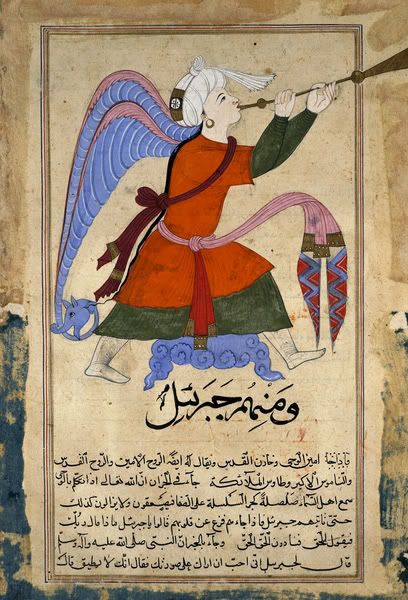 ومنهم جبرئيل
امين الوحي وخازن القدس ويقال له ايضا الروح الامين والروح القدس
والناموس الاكبر وطاوس الملائكة جاء في الخبر ان الله تعالى اذا تكلم بالوحي
سمع اهل السماء صلصلة كجر السلسلة على الصفا فيصعقون ولا يزالون كذلك
حتى ياتيهم جبرئيل فاذا جاءهم فزع عن قلوبهم قالوا يا جبرئيل ماذا قال ربك
فيقول الحق فينادون الحق الحق وجاء في الخبر ان النبي صلى الله عليه وآله وسلم
قال لجبرئيل اني احب ان اراك على صورتك فقال انك لا تطيق قال